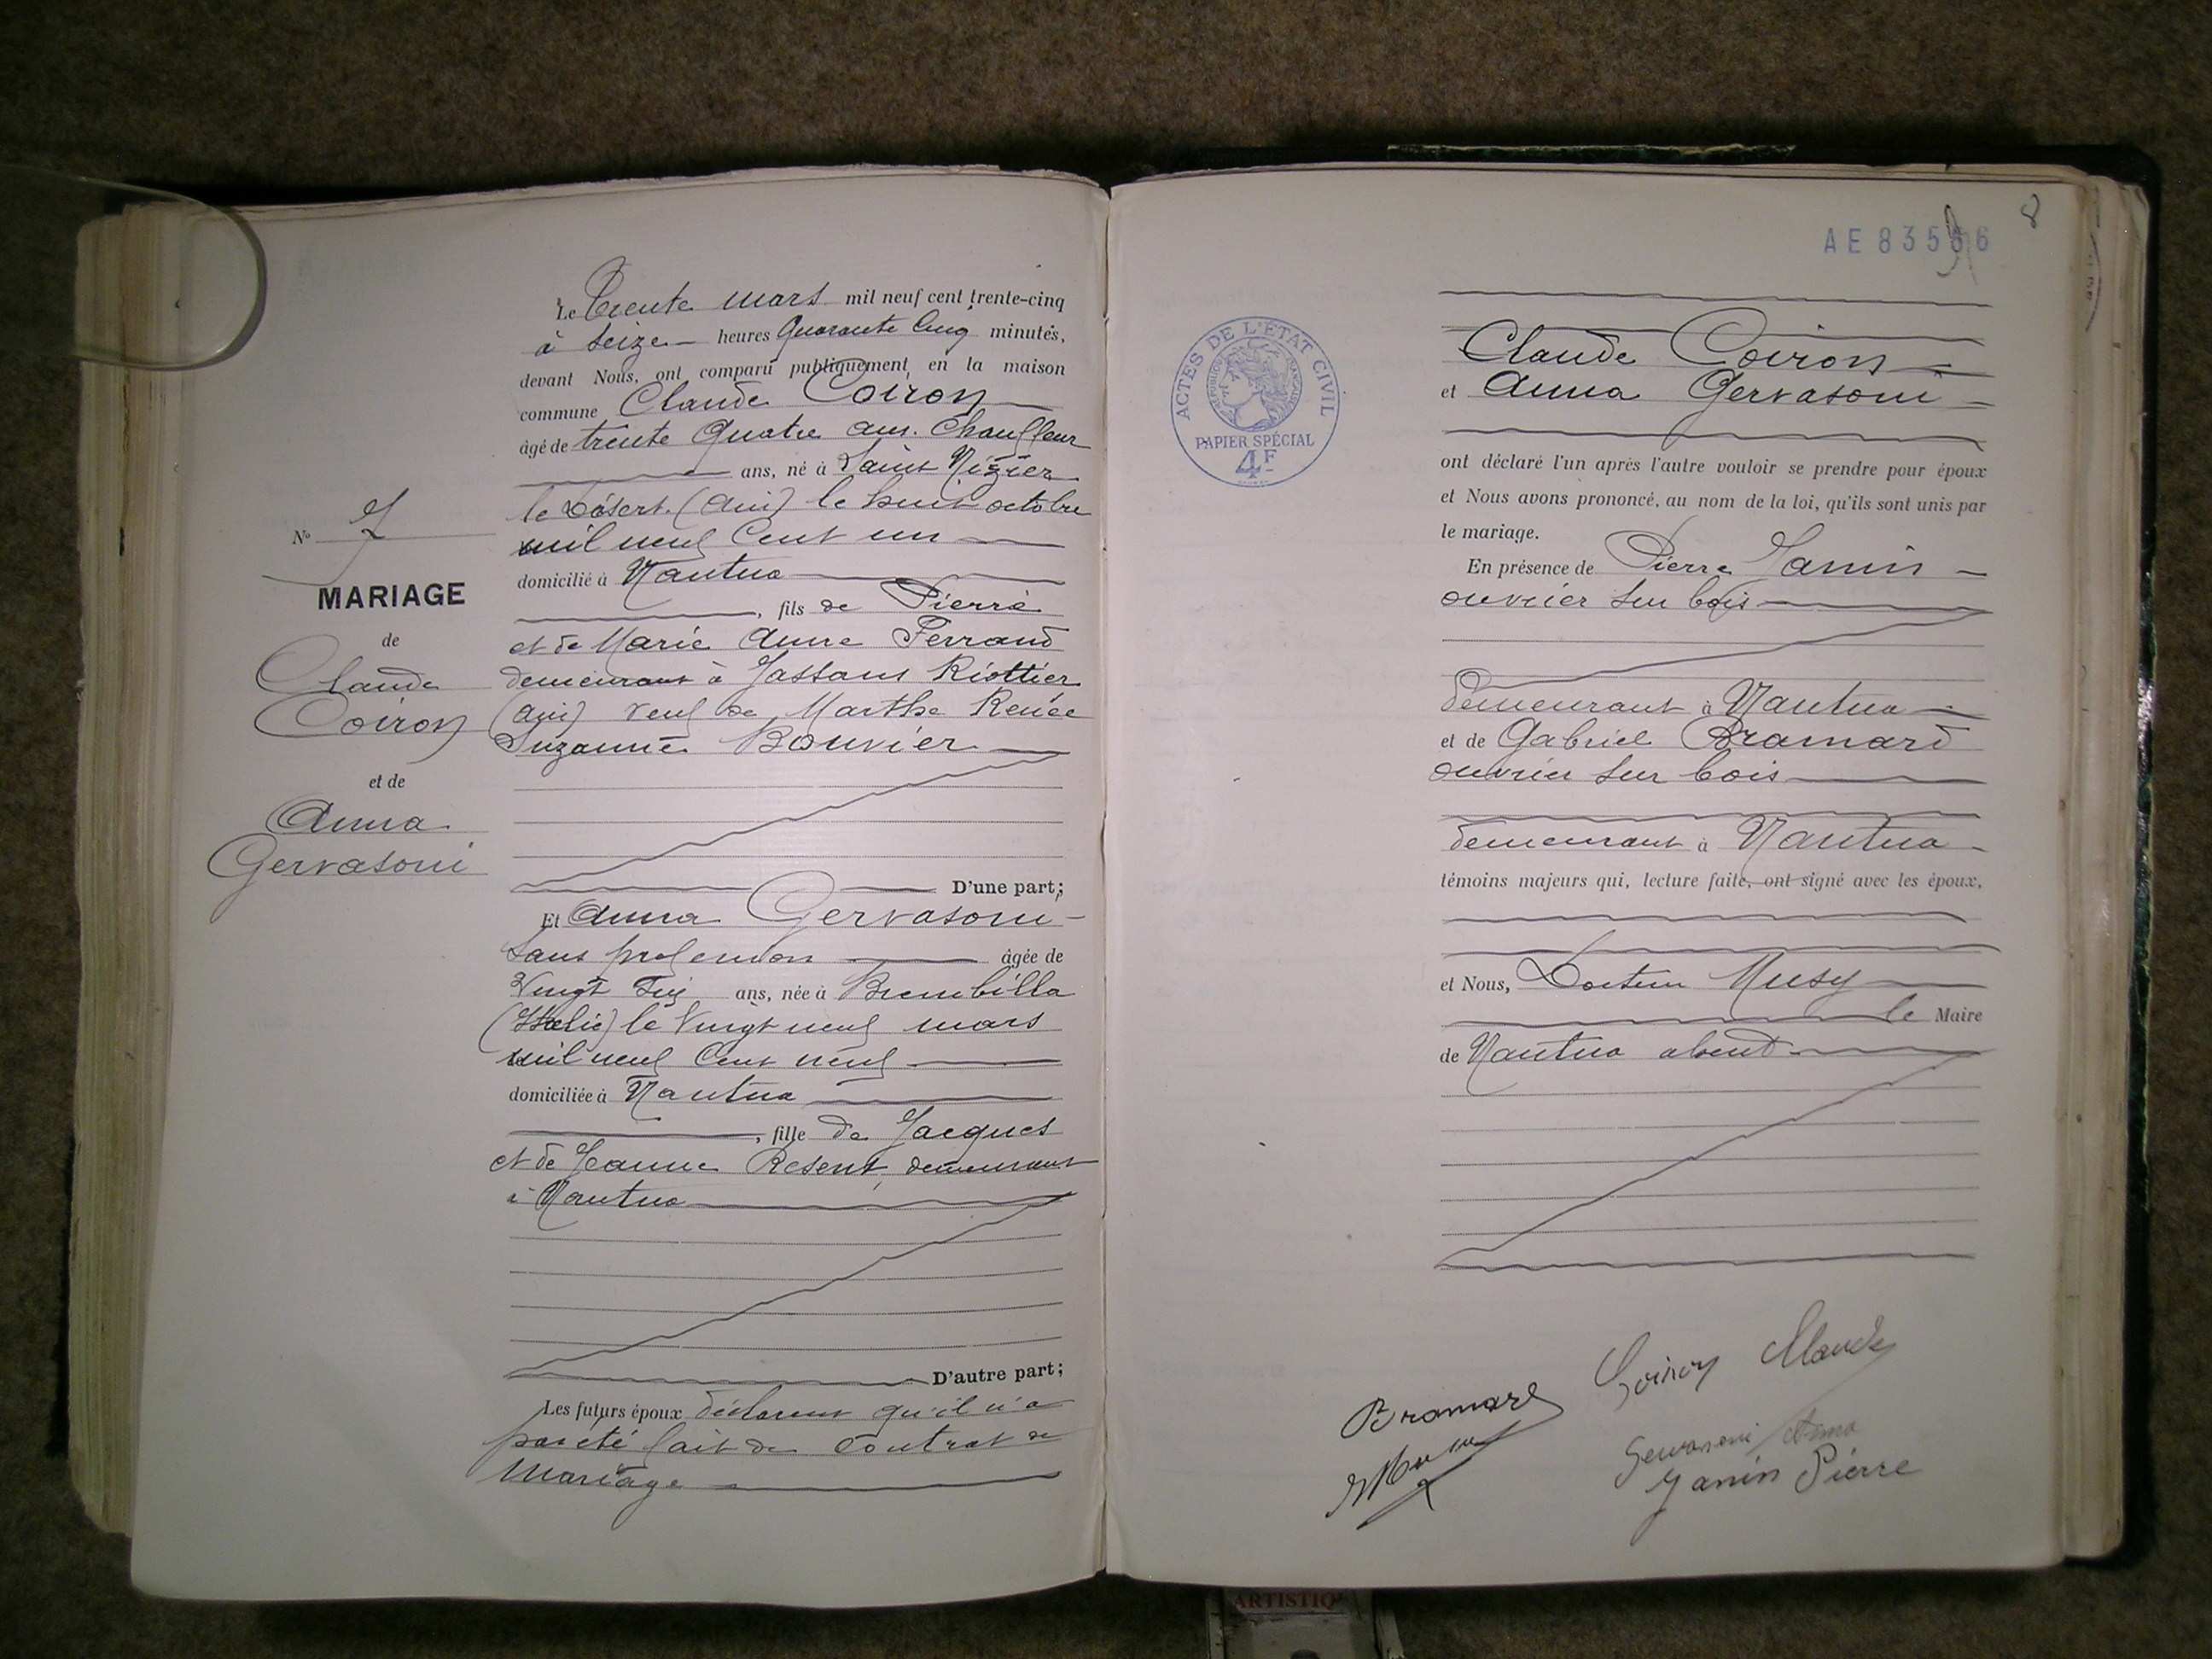 Le Trente mars mil neuf cent trente-cinq
à seize heures Quarante Cinq minutes,
devant Nous, ont comparu publiquement en la maison
commune Claude Coiron
âgé de trente Quatre ans. Chauffeur
ans, né à Saint Nizier
le Désert (Ain) le huit octobre
mil neuf Cent un
domicilié à Nantua
, fils de Pierre
et de Marie Anne Ferrand
demeurant à Jassans Riottier
(Ain) veuf de Marthe Renée
Suzanne Bouvier
D'une part;
Et Anna Gervasoni
Sans profession âgée de
Vingt Six ans, née à Brembilla
(Italie) le Vingt neuf mars
mil neuf Cent neuf
domiciliée à Nantua
, fille de Jacques
et de Jeanne Resent, demeurant
à Nantua
D'autre part;
Les futurs époux déclarent qu'il n'a
pas été fait de Contrat de
Mariage
No 7
MARIAGE
de
Claude
Coiron
et de
Anna
Gervasoni
8
AE 835 6
ACTES DE L'ÉTAT CIVIL
RÉPUBLIQUE FRANÇAISE
PAPIER SPÉCIAL
4F
Claude Coiron
et Anna Gervasoni
ont déclaré l'un après l'autre vouloir se prendre pour époux
et Nous avons prononcé, au nom de la loi, qu'ils sont unis par
le mariage.
En présence de Pierre Janin
ouvrier sur bois
demeurant à Nantua
et de Gabriel Bramard
ouvrier sur bois
demeurant à Nantua
témoins majeurs qui, lecture faite, ont signé avec les époux,
et Nous, Docteur Musy
le Maire
de Nantua absent
Coiron Claude
Bramard
Gervasoni Anna
Janin Pierre
ARTISTIQ